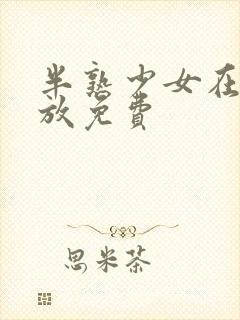 半熟少女在
放免费
思米茶